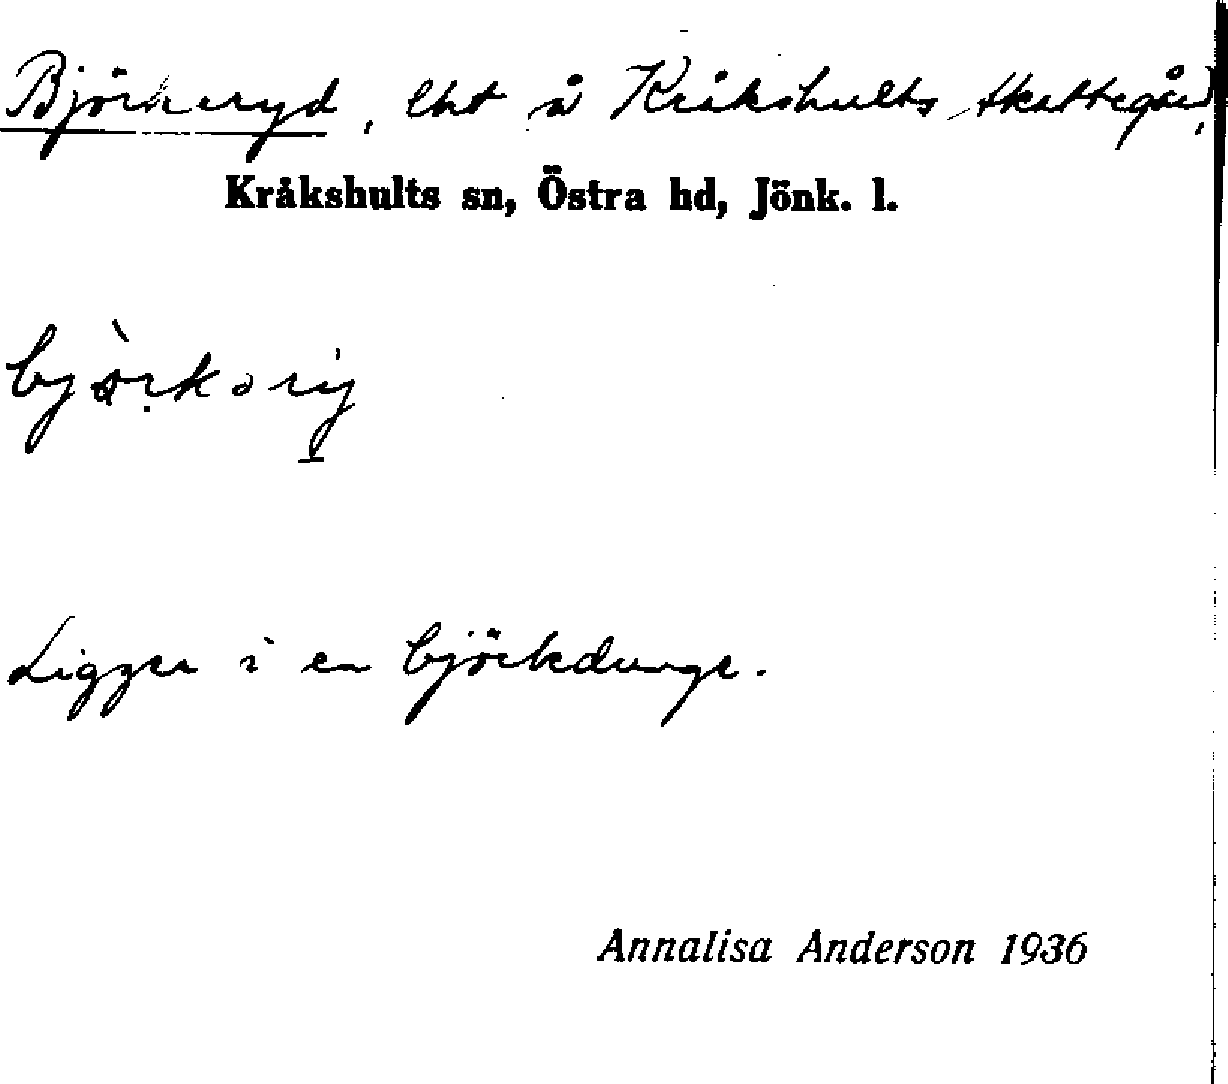 Björkeryd, lht å Kråkshults skattegård,
Kråkshults sn, Östra hd, Jönk. l.
Ligger i en björkdunge.
Annalisa Anderson 1936